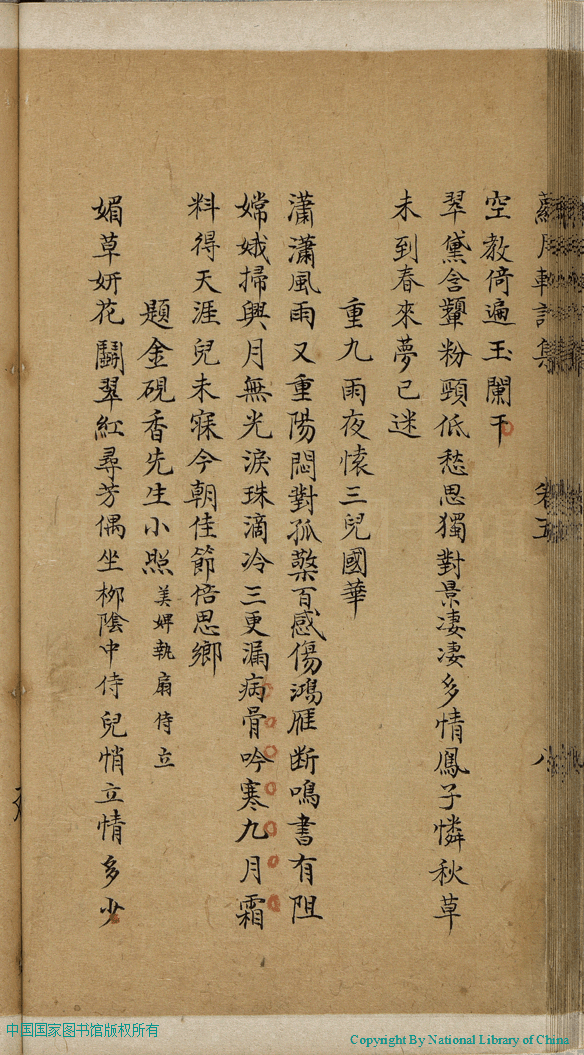 空教倚遍玉闌干
翠黛含顰粉頸低愁思獨對景凄凄多情鳳子憐秋草
未到春來夢已迷
重九雨夜懷三兒國華
瀟瀟風雨又重陽悶對孤檠百感傷鴻雁断鳴書有阻
嫦娥掃興月無光淚珠滴冷三更漏病骨吟寒九月霜
料得天涯兒未寐今朝佳節倍思鄉
題金硯香先生小照 美婢執扇侍立
媚草妍花鬭翠紅尋芳偶坐柳陰中侍兒悄立情多少
中国国家图书馆版权所有
Copyright By National Library of China